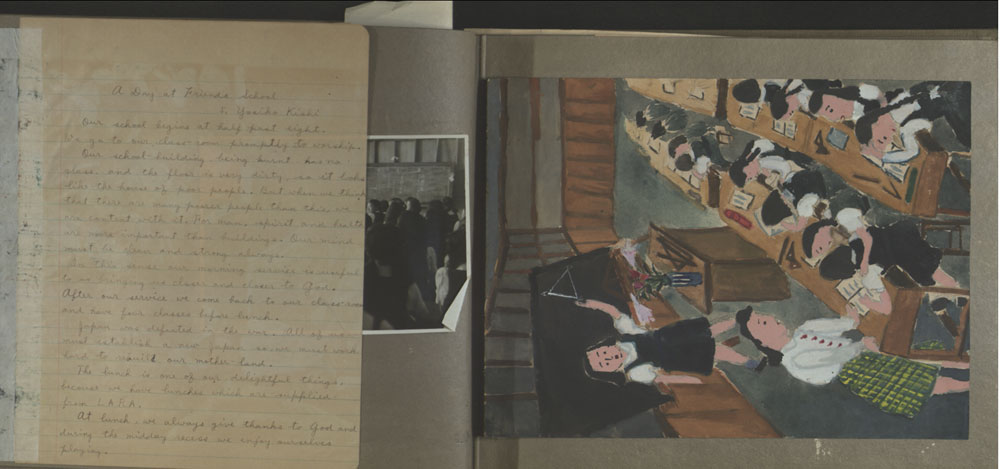 A Day at Friends School
F. Yosiko Kishi
Our school begins at half past eight.
We go to our class-room promptly to worship.
Our school-building being burnt has no
glass and the floor is very dirty, so it looks
like the house of poor people. But when we think
that there are many poorer people than this, we
are content with it. For man, spirit and health
are more important than buildings. Our mind
must be clean and strong always.
In this sense our morning service is useful
to us bringing us closer and closer to God.
After our service we come back to our class-room
and have four classes before lunch.
Japan was defeated in the war. All of us
must establish a new Japan so we must work
hard to rebuild our mother-land.
The lunch is one of our delightful things,
because we have lunches which are supplied
from L.A.R.A.
At lunch, we always give thanks to God and
during the midday recess we enjoy ourselves
playing.